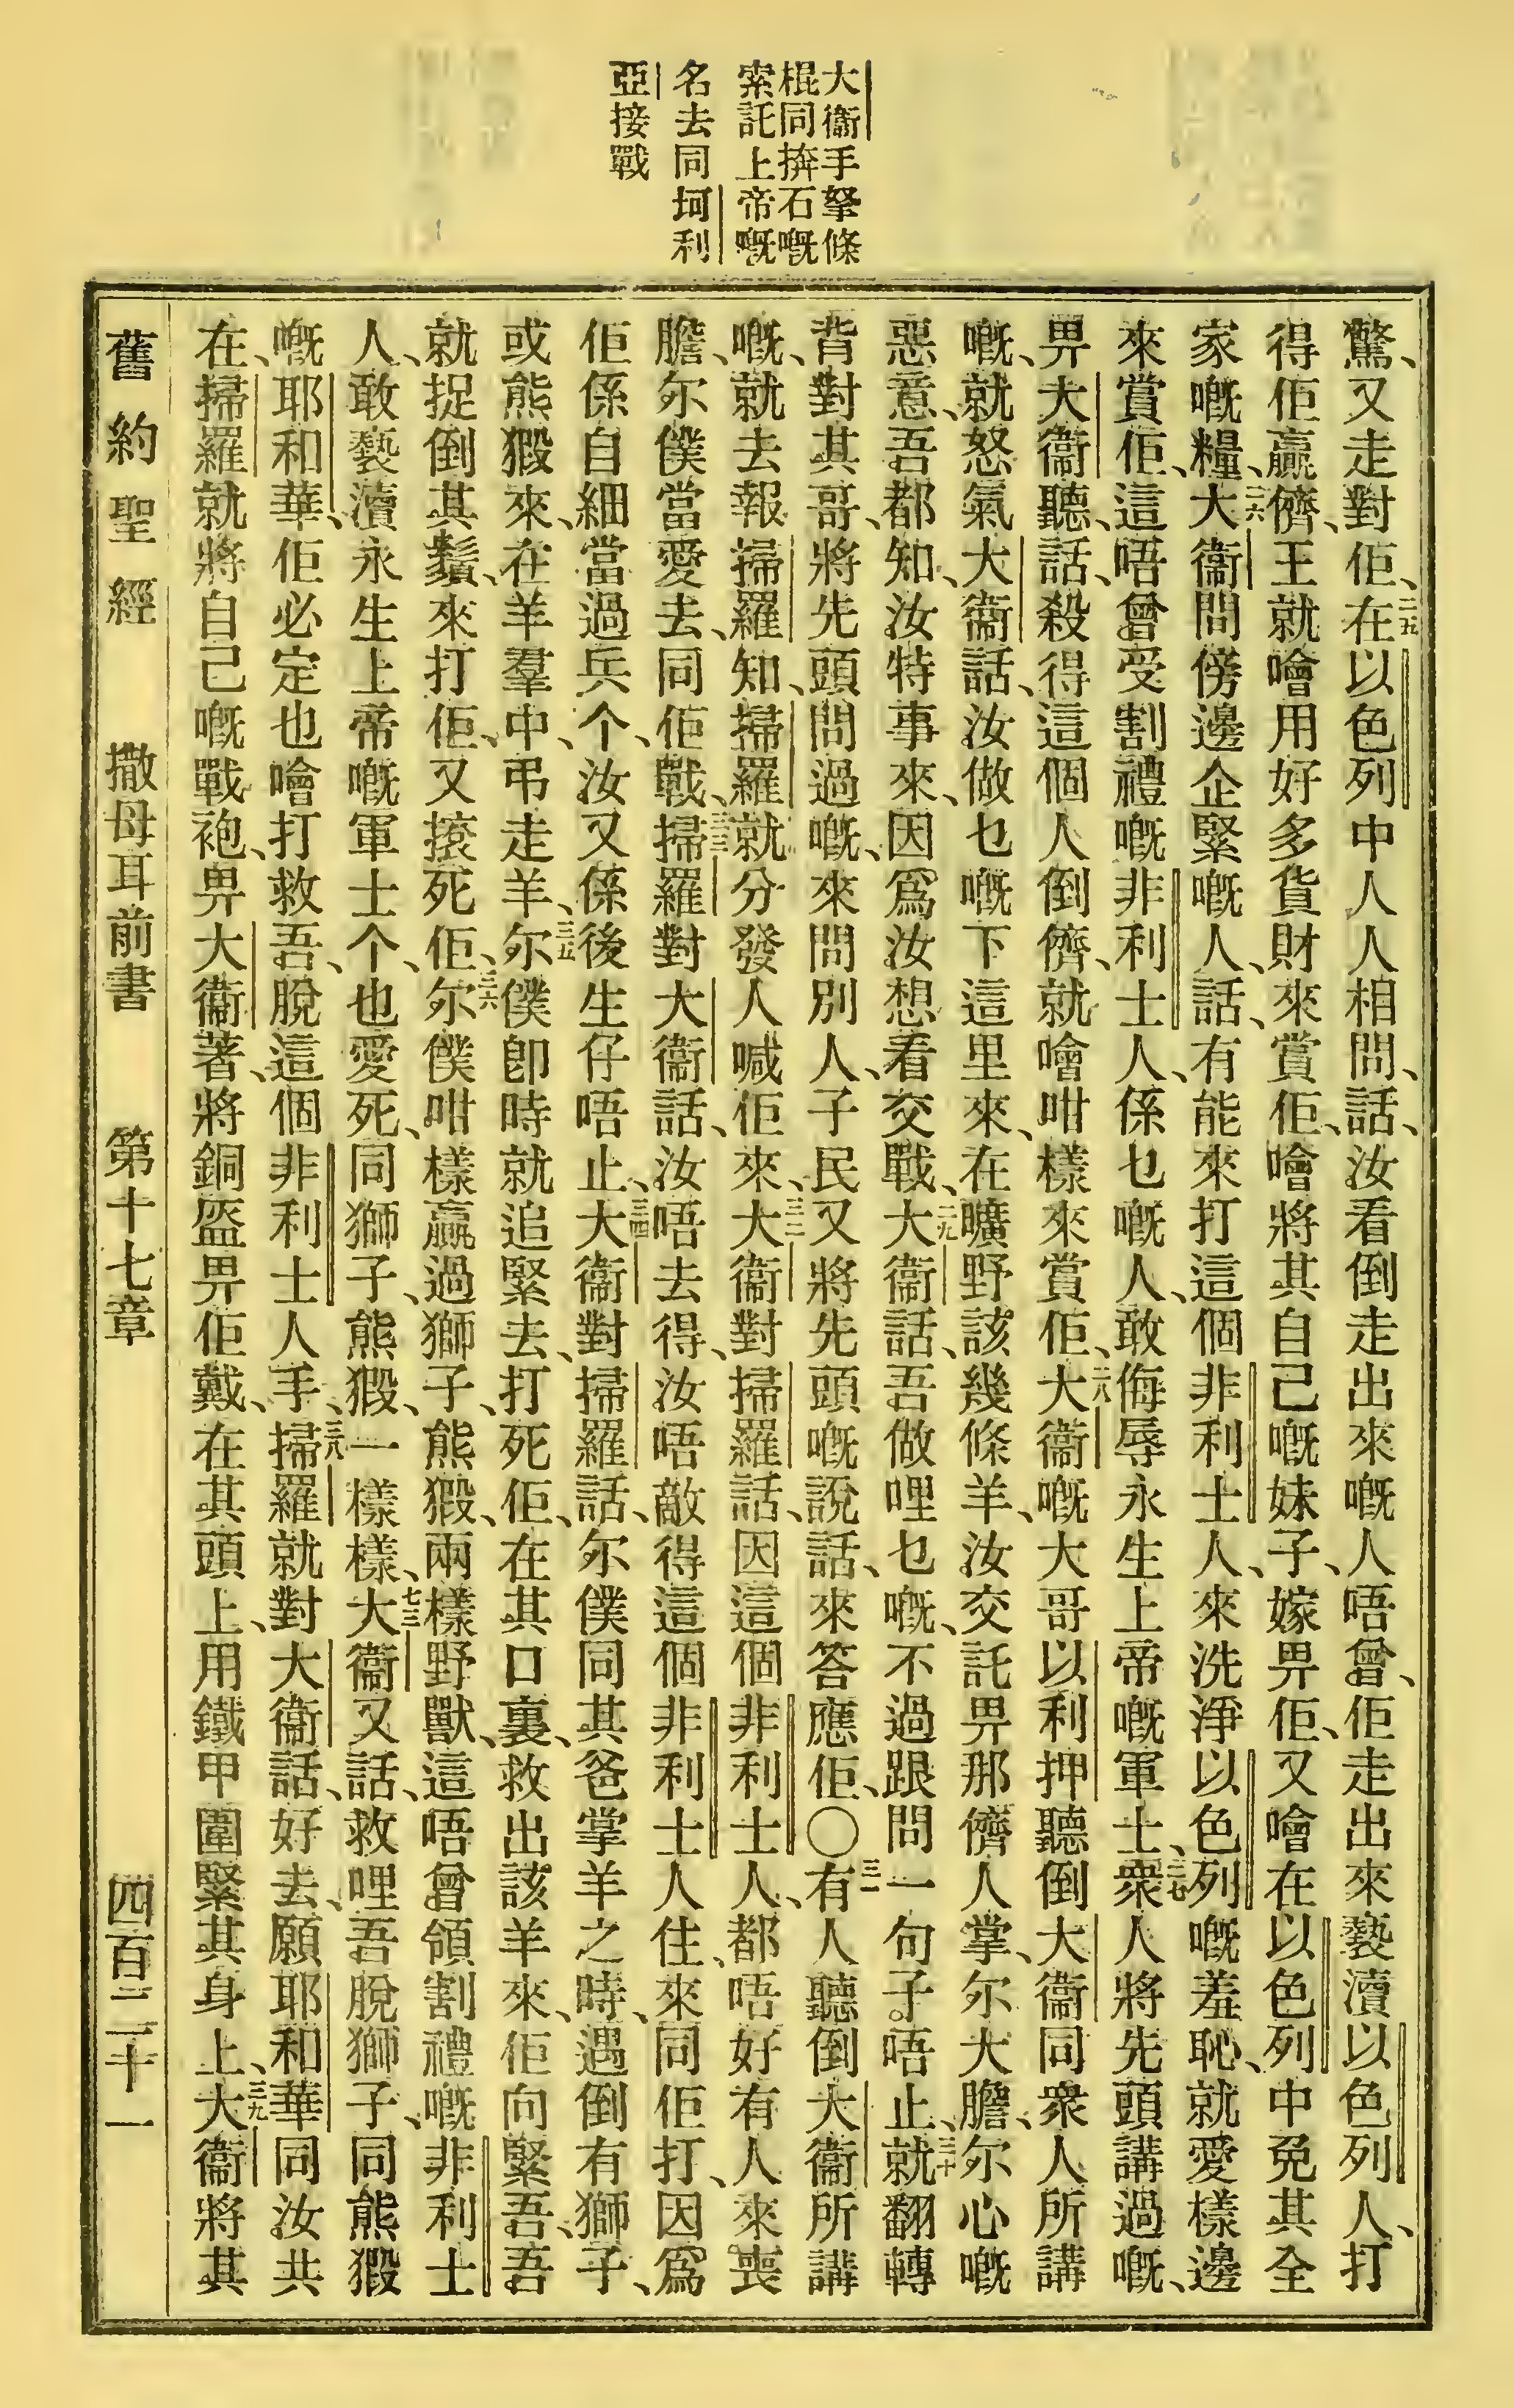 大衞手拏條
棍同𢬵石嘅
索託上帝嘅
名去同坷利
亞接戰
驚、又走對佢、二五在以色列中人人相問、話、汝看倒走出來嘅人唔曾、佢走出來褻瀆以色列人、打
得佢贏儕、王就噲用好多貨財來賞佢、噲將其自己嘅妹子、嫁畀佢、又噲在以色列中免其全
家嘅糧、二六大衞問傍邊企緊嘅人、話、有能來打這個非利士人、來洗淨以色列嘅羞恥、就愛樣邊
來賞佢、這唔曾受割禮嘅非利士人、係乜嘅人、敢侮辱永生上帝嘅軍士、二七衆人將先頭講過嘅、
畀大衞聽、話、殺得這個人倒儕、就噲咁樣來賞佢、二八大衞嘅大哥以利押聽倒大衞同衆人所講
嘅、就怒氣大衞話、汝做乜嘅下這里來、在曠野該幾條羊、汝交託畀那儕人掌、尔大膽、尔心嘅
惡意、吾都知、汝特事來、因爲汝想看交戰、二九大衞話、吾做哩乜嘅、不過跟問一句子。唔止、三十就翻轉
背對其哥、將先頭問過嘅、來問別人、子民又將先頭嘅說話、來答應佢、〇三一有人聽倒大衞所講
嘅、就去報掃羅知、掃羅就分發人喊佢來、三二大衞對掃羅話、因這個非利士人、都唔好有人來喪
膽、尔僕當愛去、同佢戰、三三掃羅對大衞話、汝唔去得、汝唔敵得這個非利士人住、來同佢打、因爲
佢係自細當過兵个、汝又係後生仔唔止、三四大衞對掃羅話、尔僕同其爸掌羊之時、遇倒有獅子、
或熊猳來、在羊羣中、弔走羊、三五尔僕卽時就追緊去、打死佢、在其口裏、救出該羊來、佢向緊吾、吾
就捉倒其鬚、來打佢、又㨰死佢、三六尔僕咁樣贏過獅子、熊猳、兩樣野獸、這唔曾領割禮嘅非利士
人、敢褻瀆永生上帝嘅軍士个、也愛死、同獅子、熊猳、一樣樣、三七大衞又話、救哩吾脫獅子、同熊猳
嘅、耶和華、佢必定也噲打救吾、脫這個非利士人手、三八掃羅就對大衞話、好去、願耶和華同汝共
在、掃羅就將自己嘅戰袍、畀大衞著、將銅盔畀佢戴、在其頭上、用鐵甲圍緊其身上、三九大衞將其
舊約聖經　撒母耳前書　第十七章　四百二十一